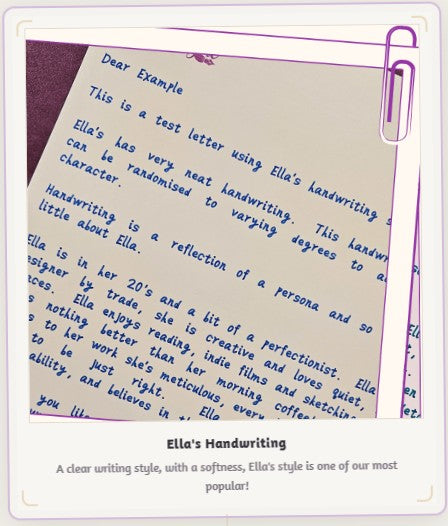 Dear Example
This is a test letter using Ella's handwriting
Ella's has very neat handwriting. This
can be randomised to varying degrees to
character.
Handwriting is a reflection of a persona and so
little about Ella.
Ella is in her 20's and a bit of a perfectionist. Ella
by trade, she is creative and loves quiet,
Ella enjoys reading, indie films and sketching
nothing better than her morning
to her work she's meticulous,
to be just right. Ella
and believes in
you
Ella's Handwriting
A clear writing style, with a softness, Ella's style is one of our most
popular!